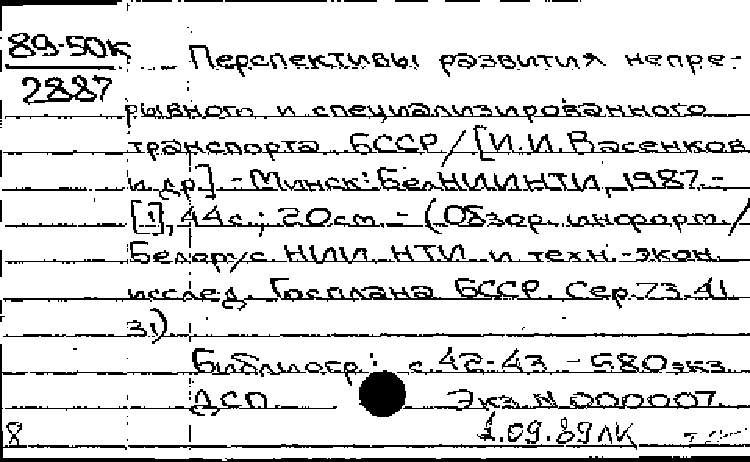 89-50К
2887
Перспективы развития непре-
рывного и специализированного
транспорта БССР / [И.И. Васенков
и др.] - Минск: БелНИИНТИ, 1987.-
[1], 44 с.; 20 см. - (Обзор. информ. /
Беларус. НИИ НТИ и техн.-экон.
исслед. Госплана БССР. Сер. 73.41
31)
Библиогр.: с. 42-43 - 580 экз.
ДСП
Экз. N 000007.
8
1.09.89 ЛК